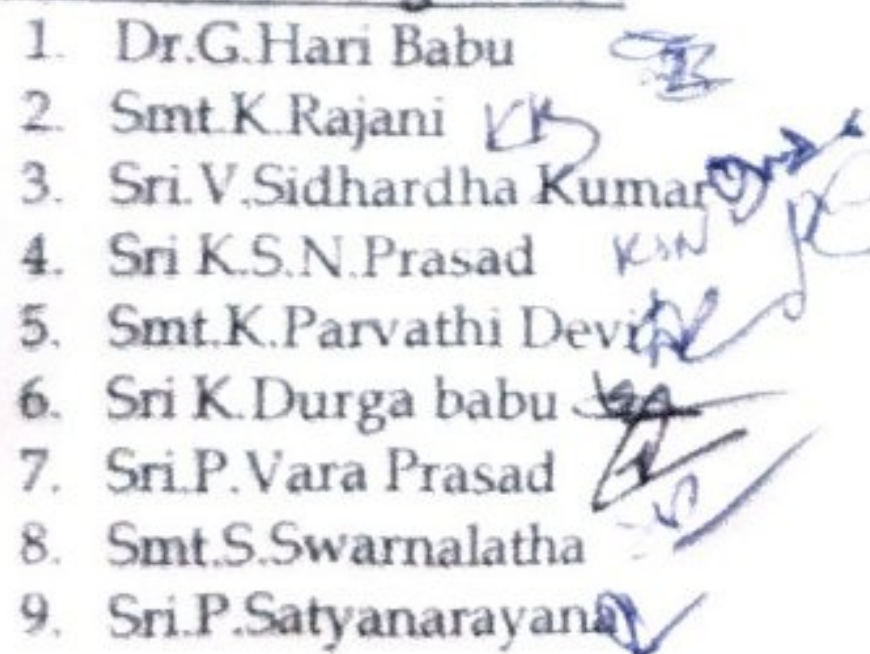 1. Dr.G.Hari Babu
2. Smt.K.Rajani
3. Sri.V.Sidhardha Kumar
4. Sri K.S.N.Prasad KSN
5. Smt.K.Parvathi Devi
6. Sri K.Durga babu
7. Sri.P.Vara Prasad
8. Smt.S.Swarnalatha
9. Sri.P.Satyanarayana